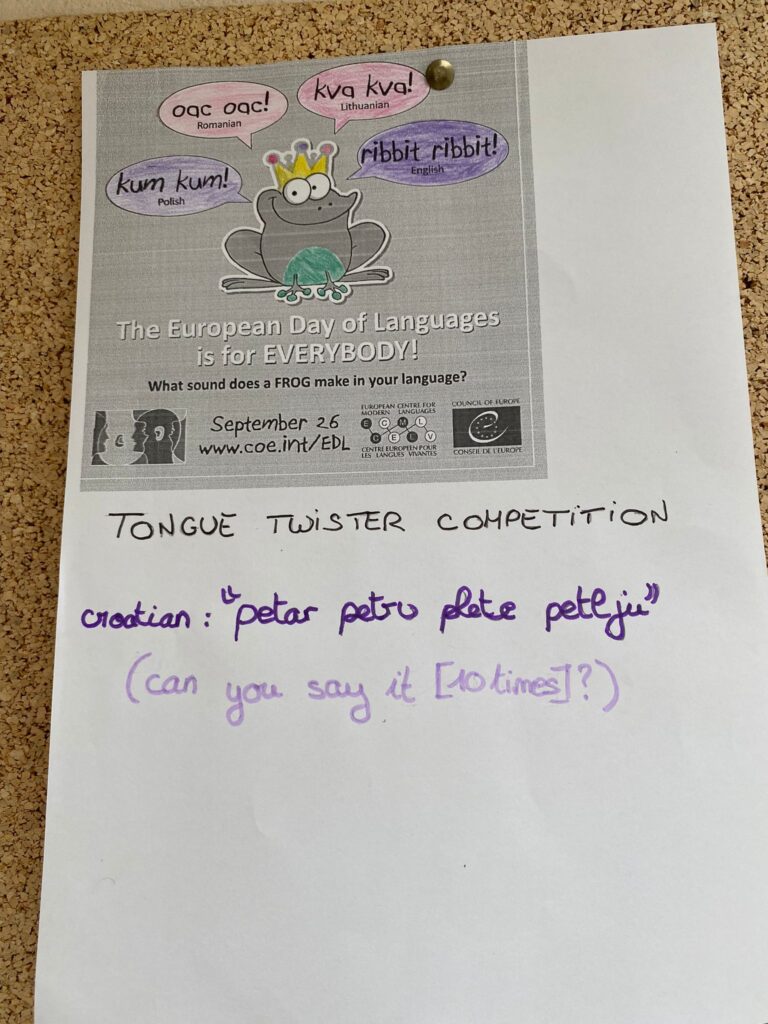 kva kva!
Lithuanian
oac oac!
Romanian
ribbit ribbit!
English
kum kum!
Polish
The European Day of Languages
is for EVERYBODY!
What sound does a FROG make in your language?
September 26
www.coe.int/EDL
EUROPEAN CENTRE FOR
MODERN LANGUAGES
E C M L
C E L V
CENTRE EUROPEEN POUR
LES LANGUES VIVANTES
COUNCIL OF EUROPE
CONSEIL DE L'EUROPE
TONGUE TWISTER COMPETITION
croatian : "petar petru plete petlju"
(can you say it [10 times]?)